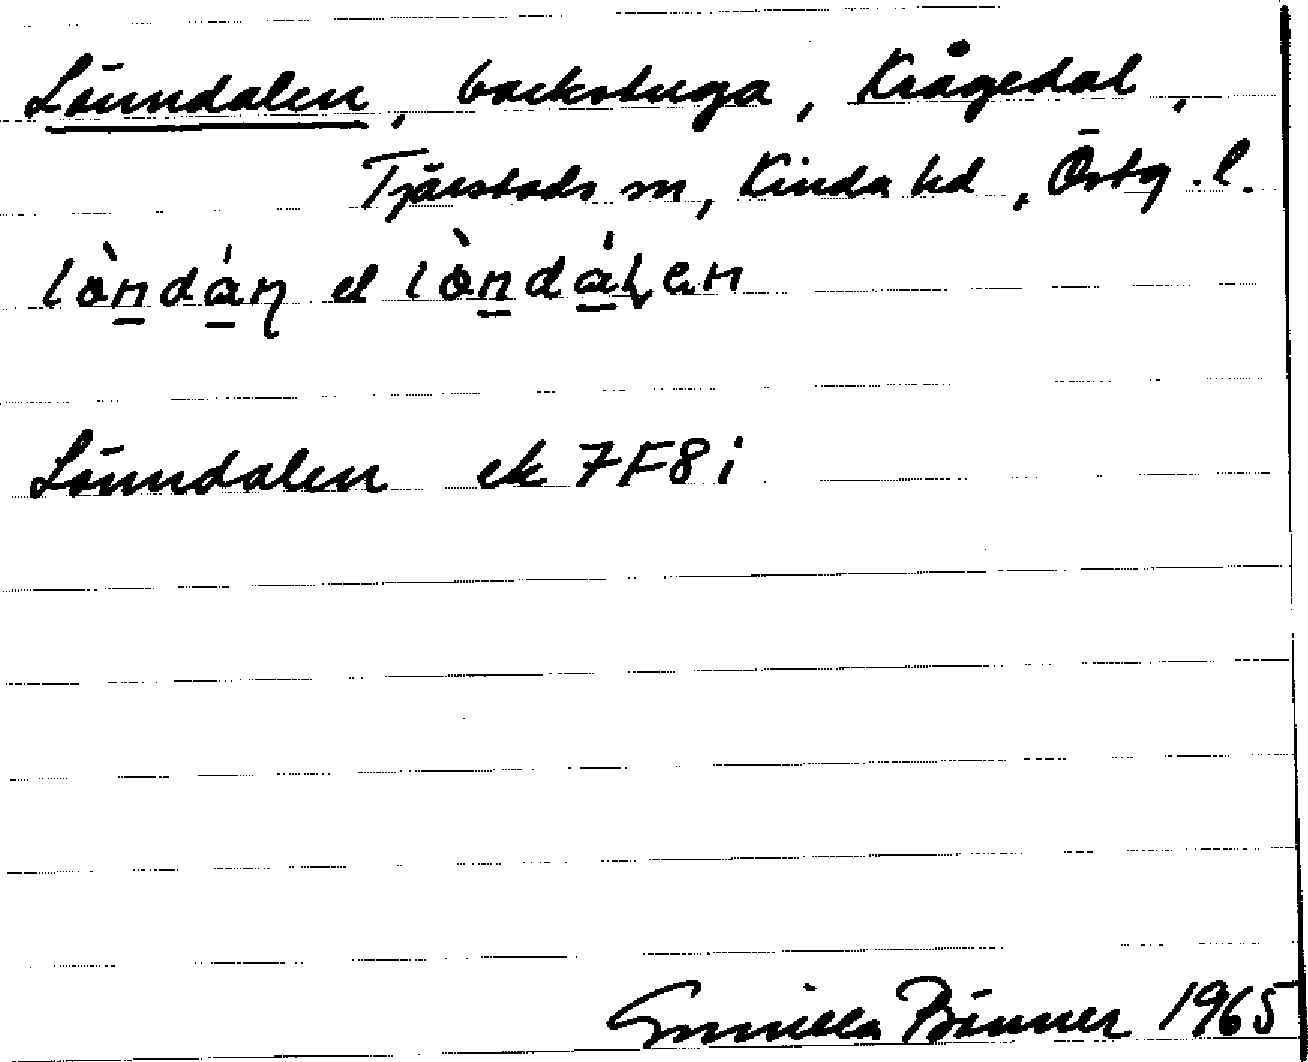 Lönndalen, backstuga, Krågedal,
Tjärstads sn, Kinda hd, Östg. l.
lòndán el lòndálen
Lönndalen ek 7F8i
Gunilla Bönner 1965